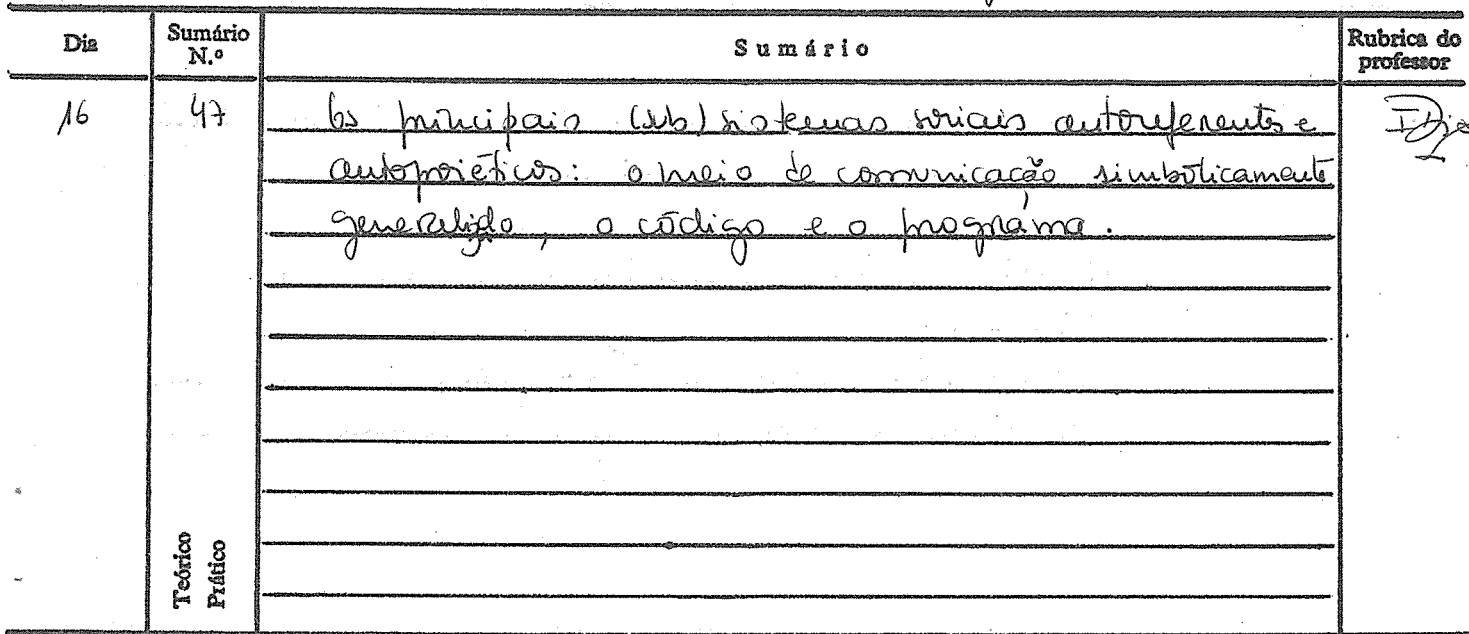 Dia
Sumário N.º
Sumário
Rubrica do professor
16
47
Os principais (sub)sistemas sociais autoreferentes e
autopoiéticos: o meio de comunicação simbolicamente
generalizado, o código e o programa.
Teórico
Prático